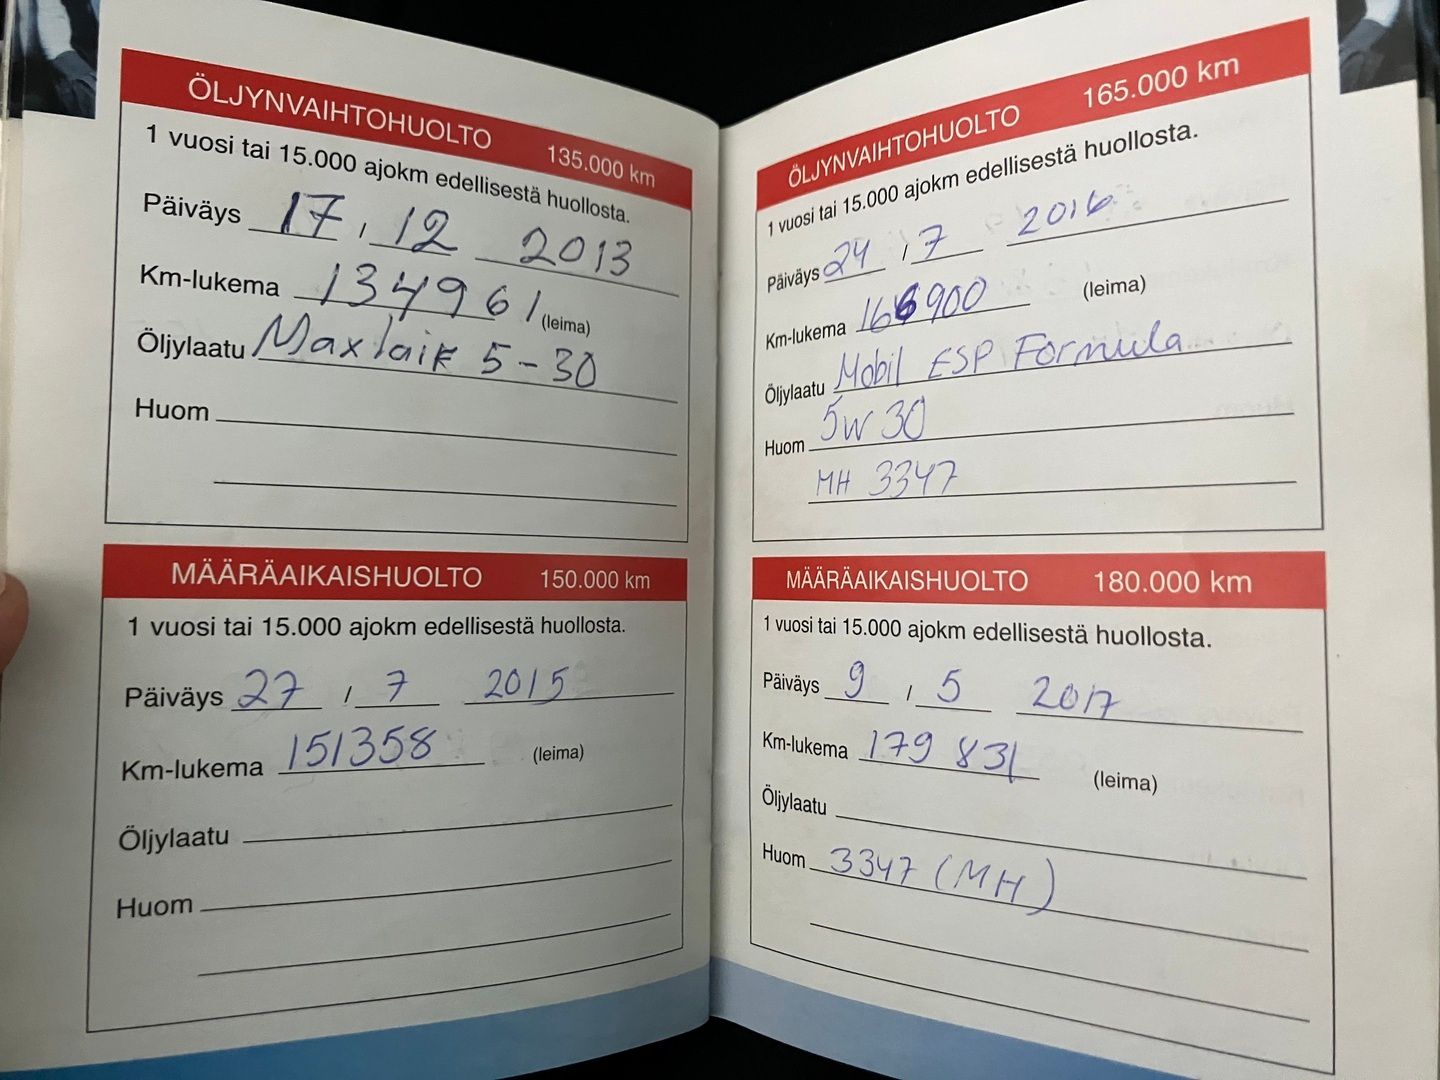 ÖLJYNVAIHTOHUOLTO 135.000 km
1 vuosi tai 15.000 ajokm edellisestä huollosta.
Päiväys 17 / 12 2013
Km-lukema 134961 (leima)
Öljylaatu Maxlaik 5-30
Huom
MÄÄRÄAIKAISHUOLTO 150.000 km
1 vuosi tai 15.000 ajokm edellisestä huollosta.
Päiväys 27 / 7 2015
Km-lukema 151358 (leima)
Öljylaatu
Huom
ÖLJYNVAIHTOHUOLTO 165.000 km
1 vuosi tai 15.000 ajokm edellisestä huollosta.
Päiväys 24 / 7 2016
Km-lukema 166900 (leima)
Öljylaatu Mobil ESP Formula
Huom 5W 30
MH 3347
MÄÄRÄAIKAISHUOLTO 180.000 km
1 vuosi tai 15.000 ajokm edellisestä huollosta.
Päiväys 9 / 5 2017
Km-lukema 179 831 (leima)
Öljylaatu
Huom 3347 (MH)